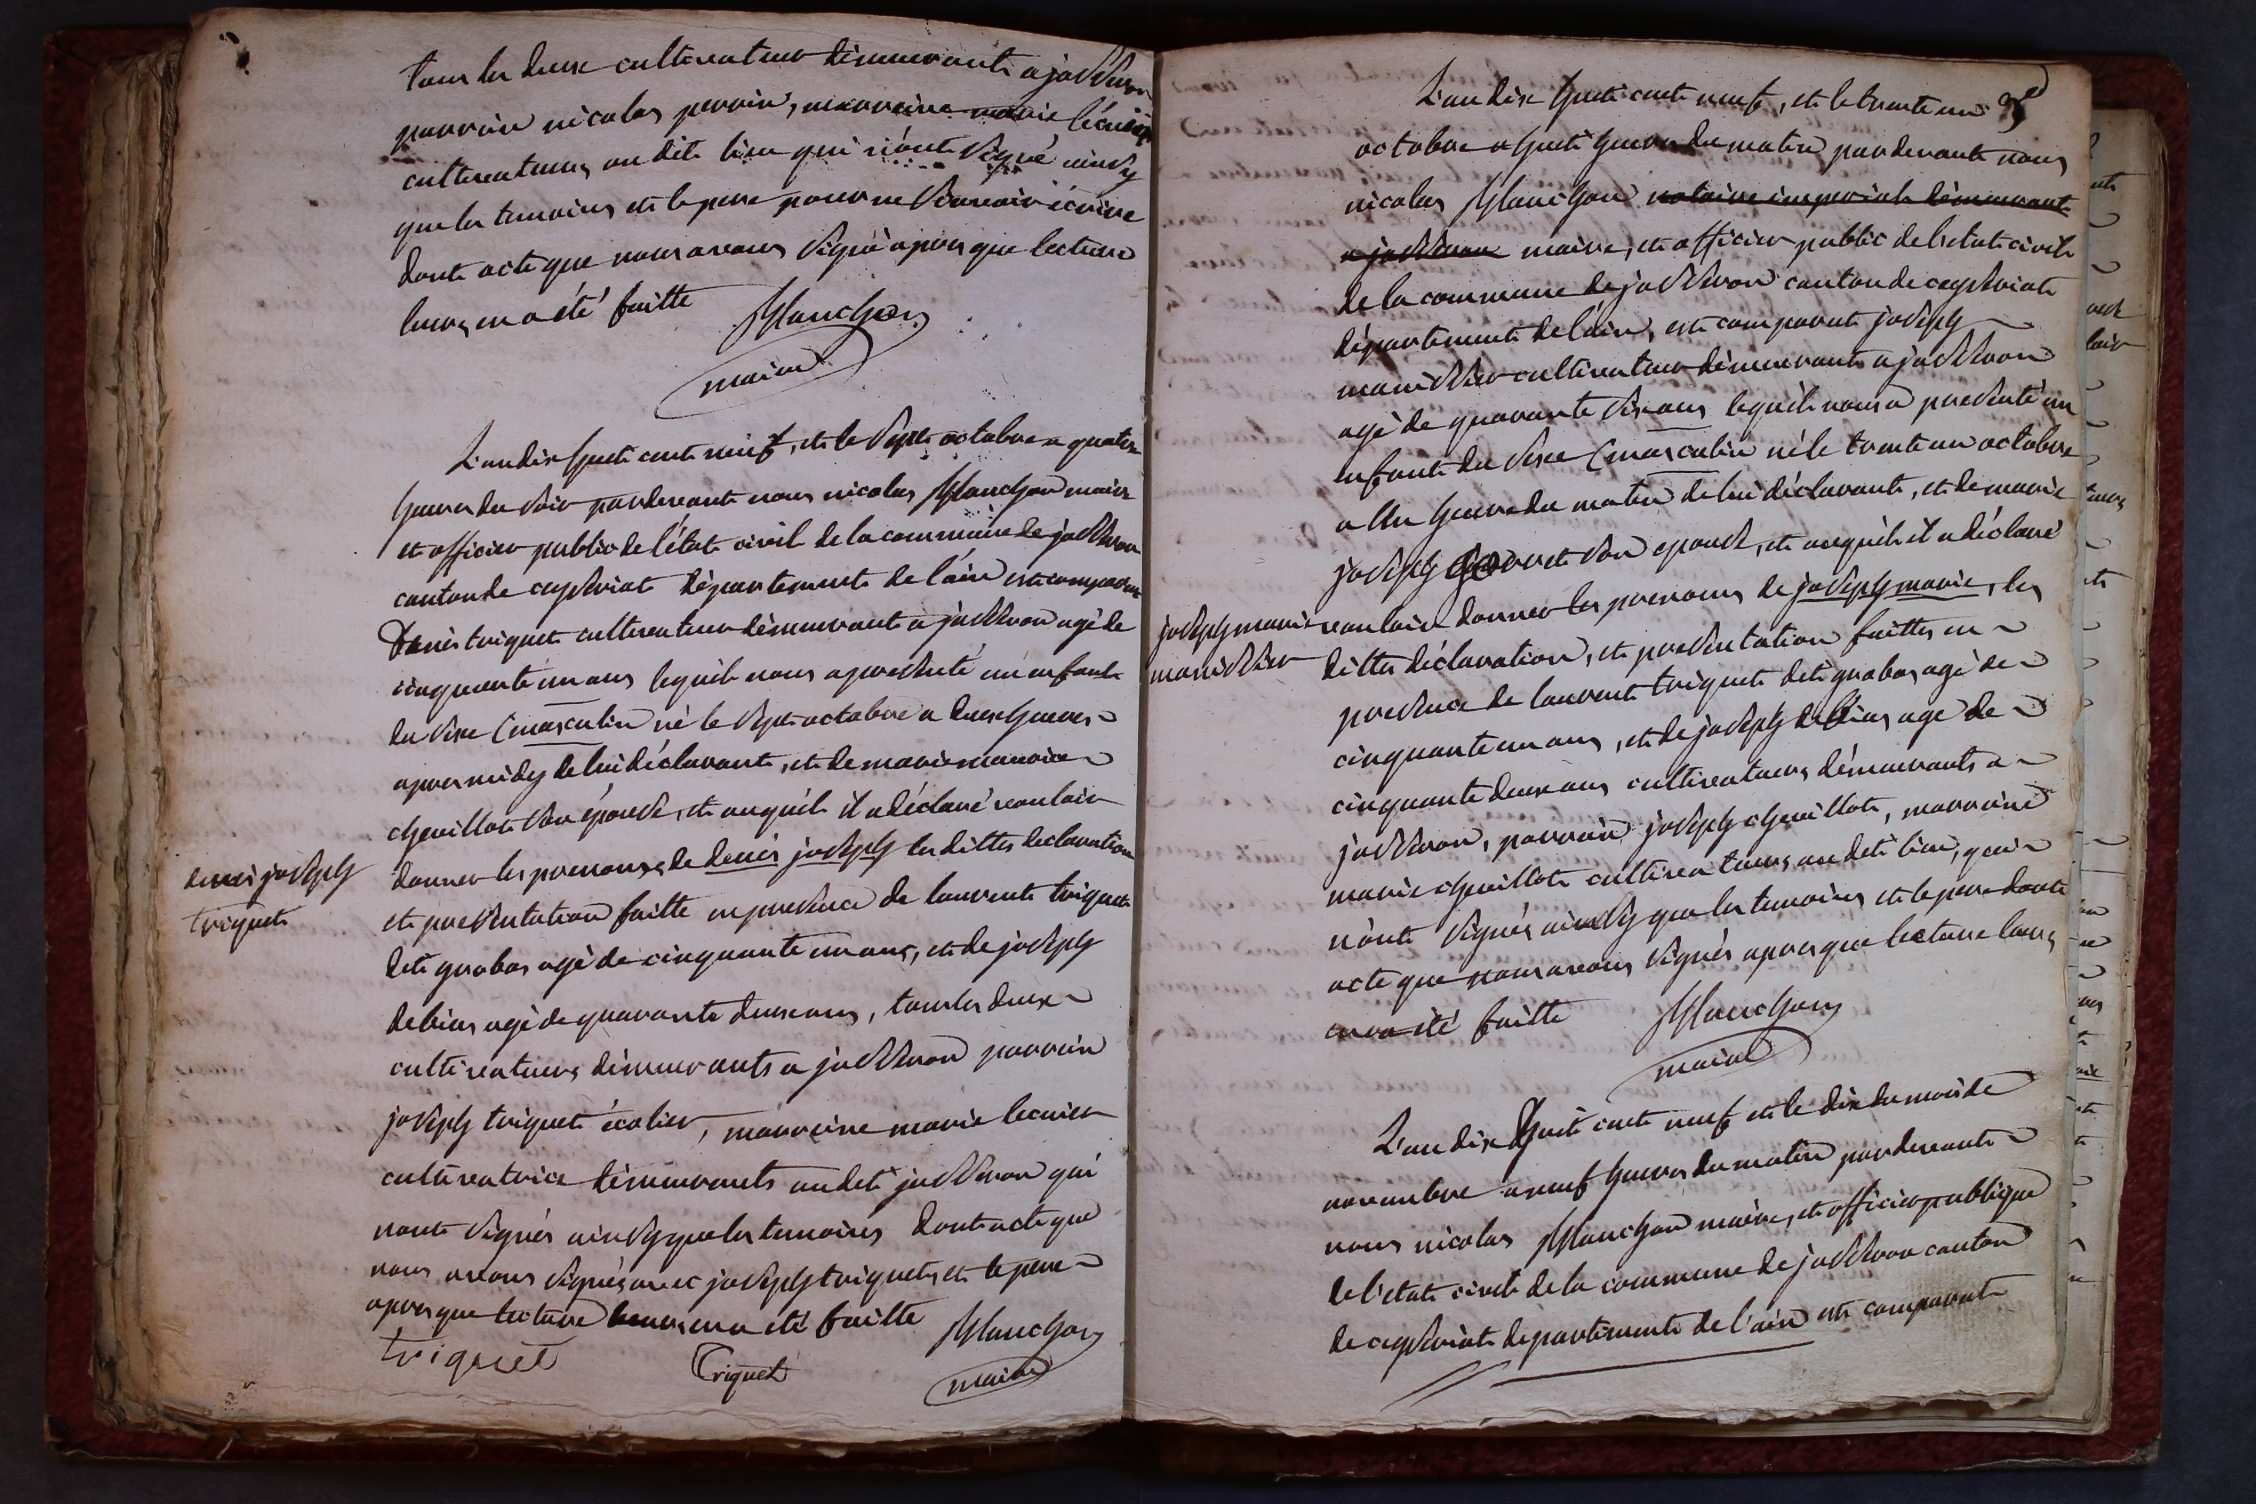 tous les deux cultivateur démeurants a jasseron
parrain nicolas perrin, marraine marie lécuier
cultivateurs au dit lieu qui n'ont signé ainsy
que les temoins et le pere pour ne sçavoir écrire
dont acte que nous avons signé apres que lecture
leurs en a été faitte
Planchon
maire
L'an dix huit cent neuf, et le sept octobre a quatre
heures du soir pardevant nous nicolas Planchon maire
et officier public de l'état civil de la commune de jasseron
canton de ceyseriat département de l'ain est comparu
Denis triquet cultivateur démeurant a jasseron agé de
cinquante un ans lequel nous a presenté un enfant
du sexe masculin né le sept octobre a deux heures
apres midy de lui déclarant, et de marie
chevillot son épouse, et auquel il a déclaré vouloir
donner les prenoms de denis joseph les dittes declaration
et presentation faitte en presence de laurent triquet
dit grabas agé de cinquante un ans, et de joseph
debias agé de quarante deux ans, tous les deux
cultivateurs démeurants a jasseron parrain
joseph triquet écolier, marraine marie lecuier
cultivatrice démeurants audit jasseron qui
nont signés ainsy que les temoins dont acte que
nous avons signés avec joseph triquet et le pere
apres que lecture leurs en a été faitte
Planchon
triquet
Triquet
maire
denis joseph
triquet
L'an dix huit cent neuf, et le trente un
octobre a huit heures du matin pardevant nous
nicolas Planchon notaire imperial démeurant
a jasseron maire, et officier public de l'etat civil
de la commune de jasseron canton de ceyseriat
département de l'ain, est comparut joseph
manissier cultivateur démeurant a jasseron
agé de quarante six ans lequel nous a presenté un
enfant du sexe masculin né le trente un octobre
a une heure du matin de lui déclarant, et de marie
joseph son epouse, et auquel il a déclaré
vouloir donner les prenoms de joseph marie, les
dittes déclaration, et presentation faittes en
presence de laurent triquet dit grabas agé de
cinquante un ans, et de joseph debias agé de
cinquante deux ans cultivateurs démeurants a
jasseron, parrain joseph chevillot, marraine
marie chevillot cultivateurs au dit lieu, qui
n'ont signés ainsy que les temoins et le pere dont
acte que nous avons signés apres que lecture leurs
en a été faitte
Planchon
maire
joseph marie
manissier
L'an dix huit cent neuf et le dix du mois de
novembre a neuf heures du matin pardevant
nous nicolas Planchon maire, et officier publique
de l'etat civil de la commune de jasseron canton
de ceyseriat departement de l'ain est comparut